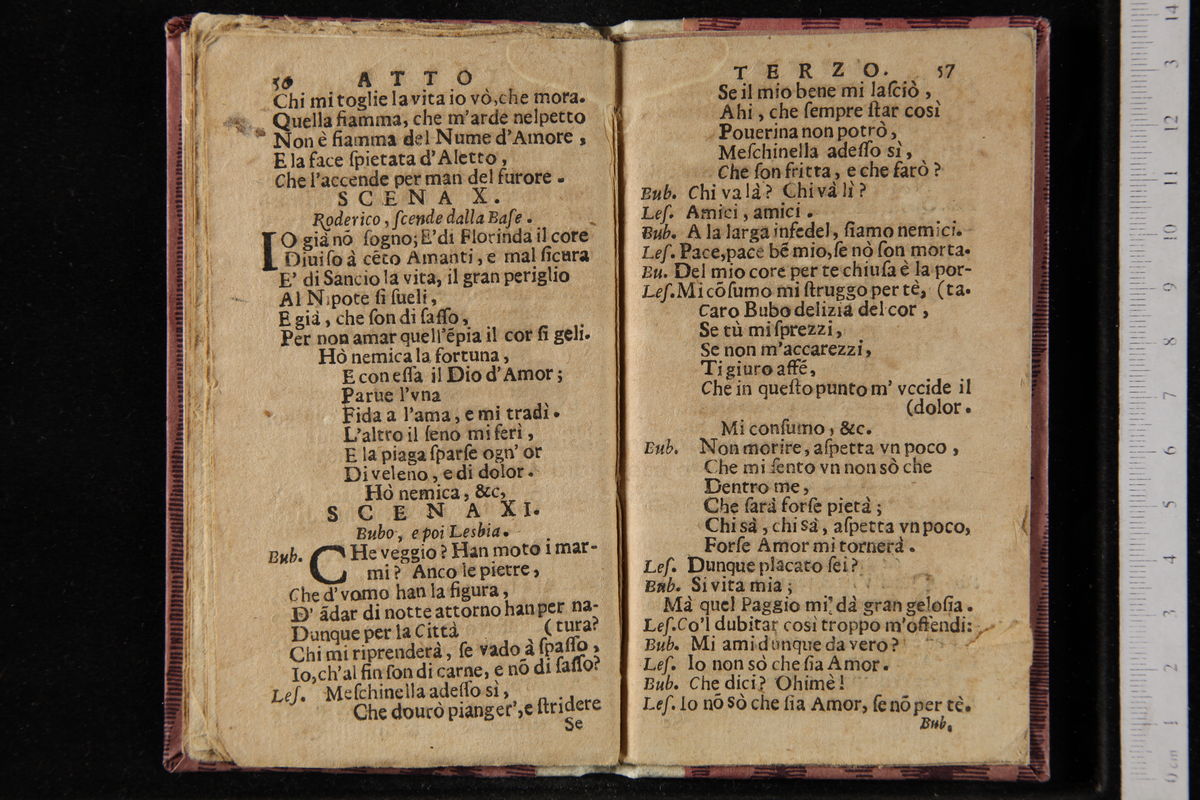 56 ATTO
Chi mi toglie la vita io vò, che mora.
Quella fiamma, che m'arde nel petto
Non è fiamma del Nume d'Amore,
E la face ſpietata d'Aletto,
Che l'accende per man del furore.
SCENA X.
Roderico, ſcende dalla Baſe.
IO già nõ ſogno; E' di Florinda il core
Diuiſo à cẽto Amanti, e mal ſicura
E' di Sancio la vita, il gran periglio
Al Nipote ſi ſueli,
E già, che ſon di ſaſſo,
Per non amar quell'ẽpia il cor ſi geli.
Hò nemica la fortuna,
E con eſſa il Dio d'Amor;
Parue l'vna
Fida a l'ama, e mi tradì.
L'altro il ſeno mi ferì,
E la piaga ſparſe ogn' or
Di veleno, e di dolor.
Hò nemica, &c,
SCENA XI.
Bubo, e poi Lesbia.
Bub. CHe veggio? Han moto i mar-
mi? Anco le pietre,
Che d'vomo han la figura,
D' ãdar di notte attorno han per na-
Dunque per la Città (tura?
Chi mi riprenderà, ſe vado à ſpaſſo,
Io, ch'al fin ſon di carne, e nõ di ſaſſo?
Leſ. Meſchinella adeſſo sì,
Che dourò pianger', e ſtridere
Se
TERZO. 57
Se il mio bene mi laſciò,
Ahi, che ſempre ſtar così
Pouerina non potrò,
Meſchinella adeſſo sì,
Che ſon fritta, e che farò?
Bub. Chi va là? Chi và lì?
Leſ. Amici, amici.
Bub. A la larga infedel, ſiamo nemici.
Leſ. Pace, pace bẽ mio, ſe nò ſon morta.
Bu. Del mio core per te chiuſa è la por-
Leſ. Mi cõſumo mi ſtruggo per tè, (ta.
Caro Bubo delizia del cor,
Se tù mi ſprezzi,
Se non m'accarezzi,
Ti giuro affé,
Che in queſto punto m' vccide il
(dolor.
Mi conſumo, &c.
Bub. Non morire, aſpetta vn poco,
Che mi ſento vn non sò che
Dentro me,
Che ſarà forſe pietà;
Chi sà, chi sà, aſpetta vn poco,
Forſe Amor mi tornerà.
Leſ. Dunque placato ſei?
Bub. Si vita mia;
Mà quel Paggio mi dà gran geloſia.
Leſ. Co'l dubitar così troppo m'offendi:
Bub. Mi ami dunque da vero?
Leſ. Io non sò che ſia Amor.
Bub. Che dici? Ohimè!
Leſ. Io nõ sò che ſia Amor, ſe nõ per tè.
Bub.
14
13
12
11
10
9
8
7
6
5
4
3
2
1
0 cm